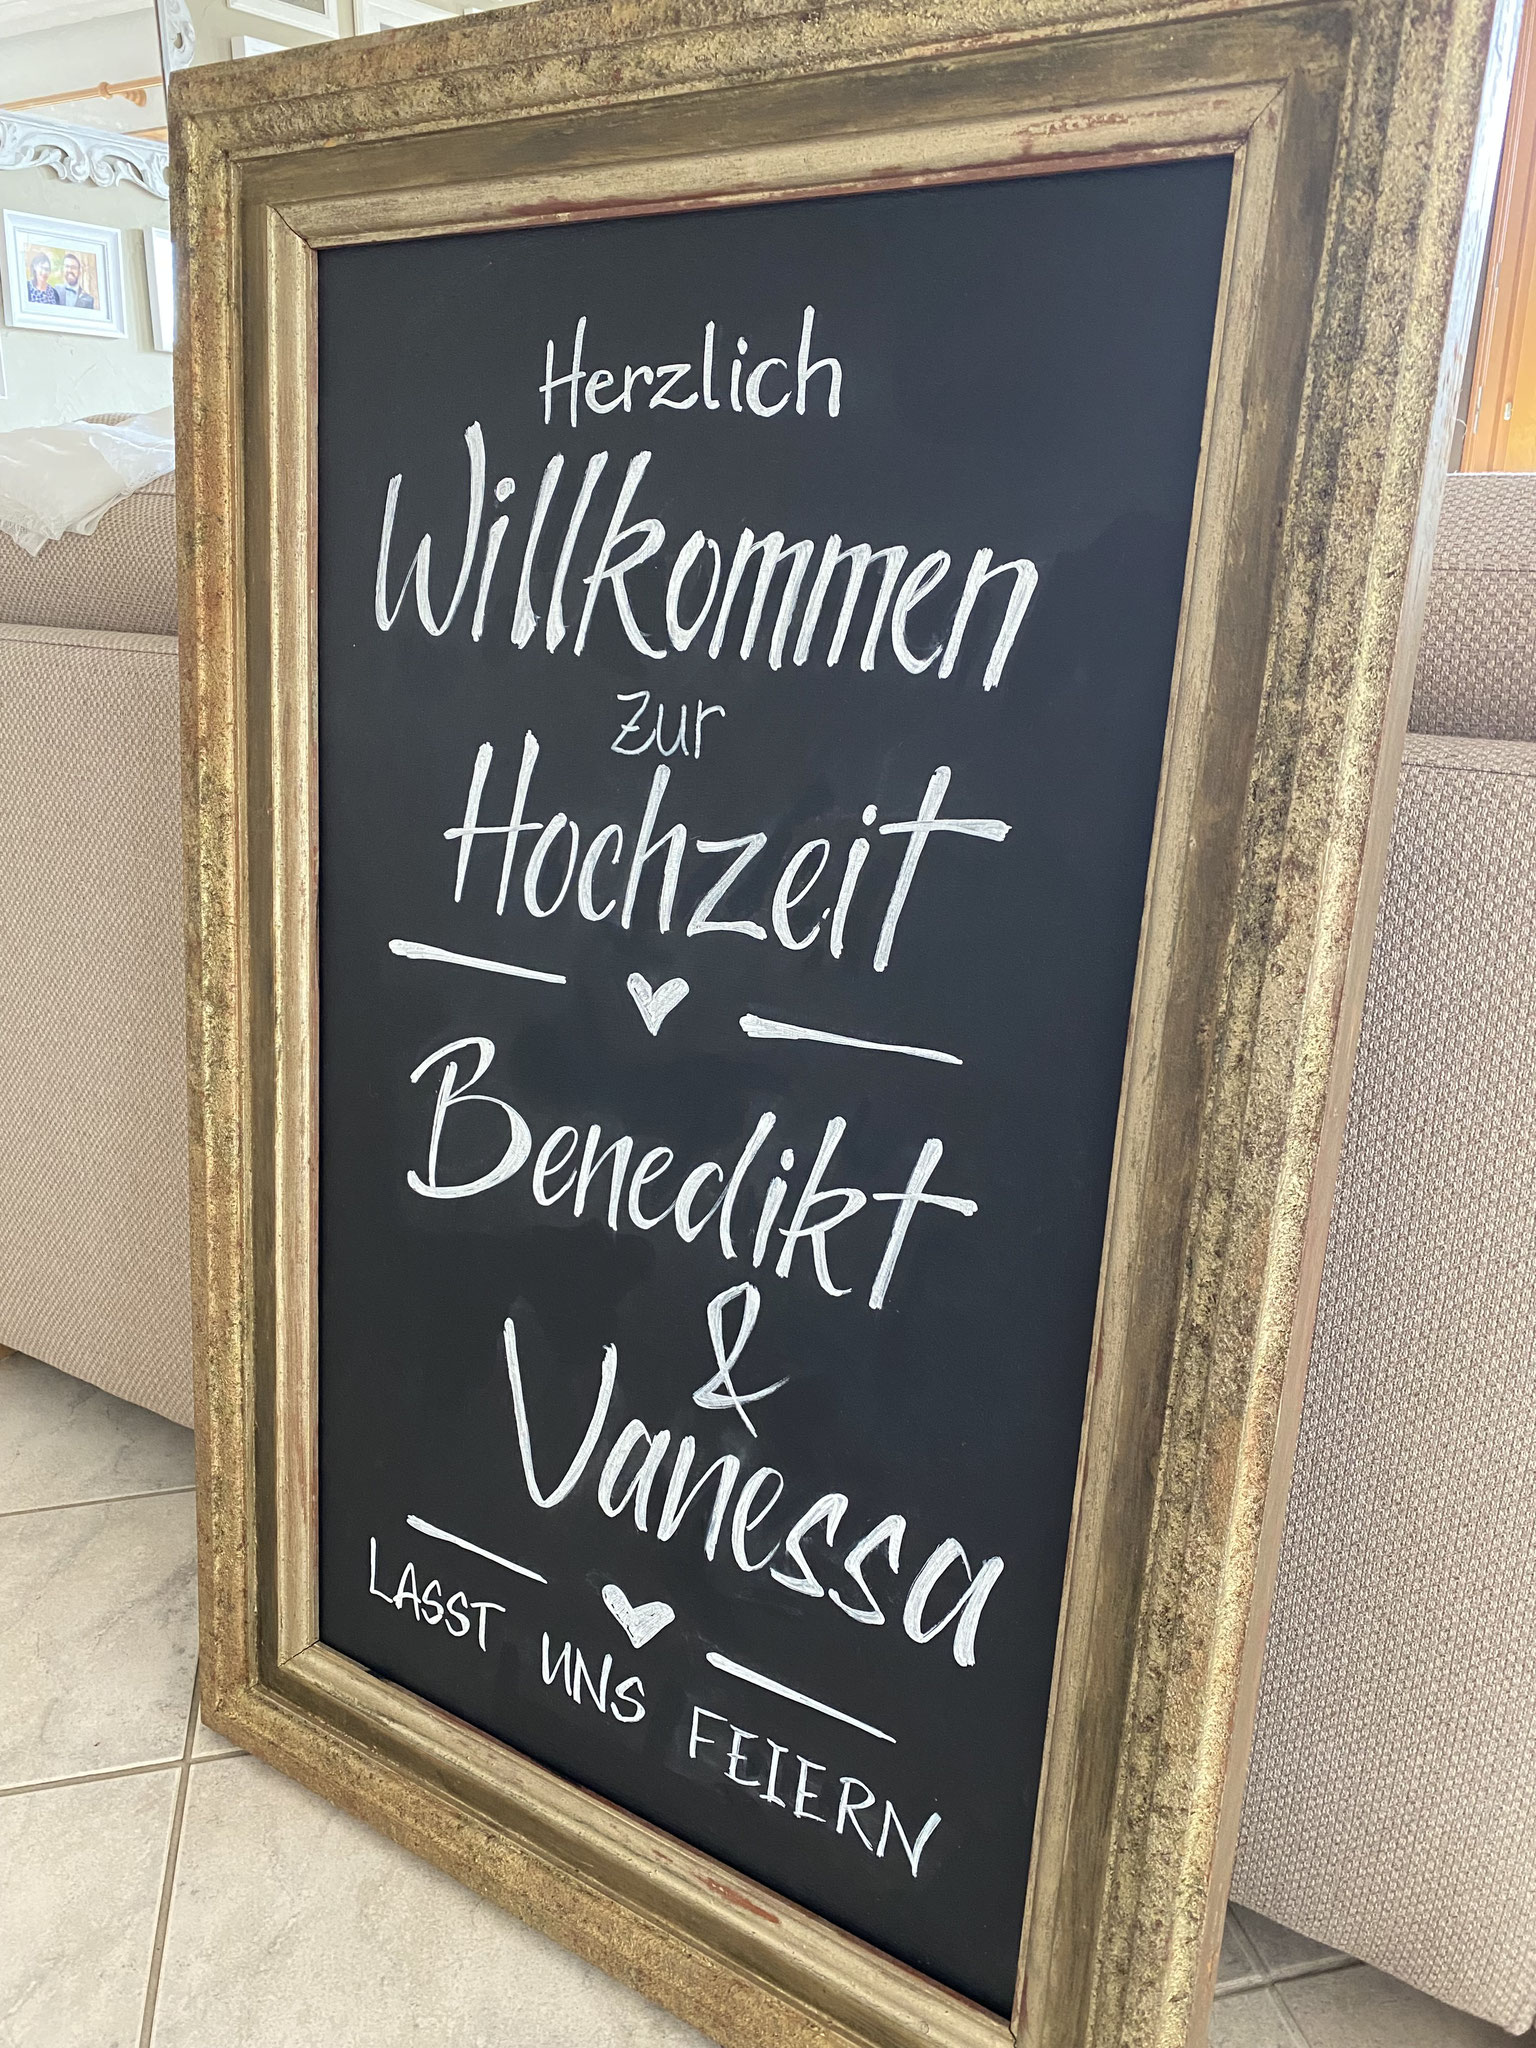 Herzlich
Willkommen
zur
Hochzeit
Benedikt
&
Vanessa
LASST UNS FEIERN